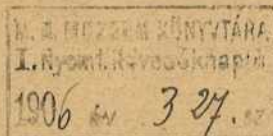 M. N. MUZEUM KÖNYVTÁRA
I. Nyomt. Növedéknapló
1906 év 327. sz